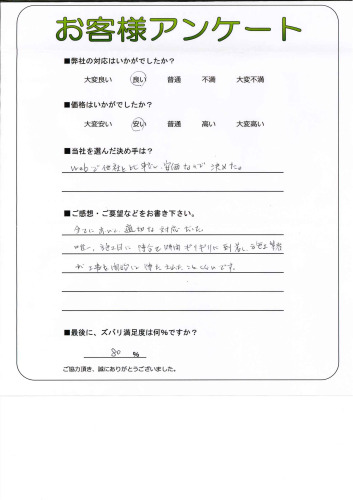 お客様アンケート
■弊社の対応はいかがでしたか？
大変良い 良い 普通 不満 大変不満
■価格はいかがでしたか？
大変安い 安い 普通 高い 大変高い
■当社を選んだ決め手は？
webで他社と比較し、安価なので決めた。
■ご感想・ご要望などをお書き下さい。
全てに於いて適切な対応だった。
唯一、施工日に待合せ時間ギリギリに到着し、
■最後に、ズバリ満足度は何％ですか？
80 ％
ご協力頂き、誠にありがとうございました。